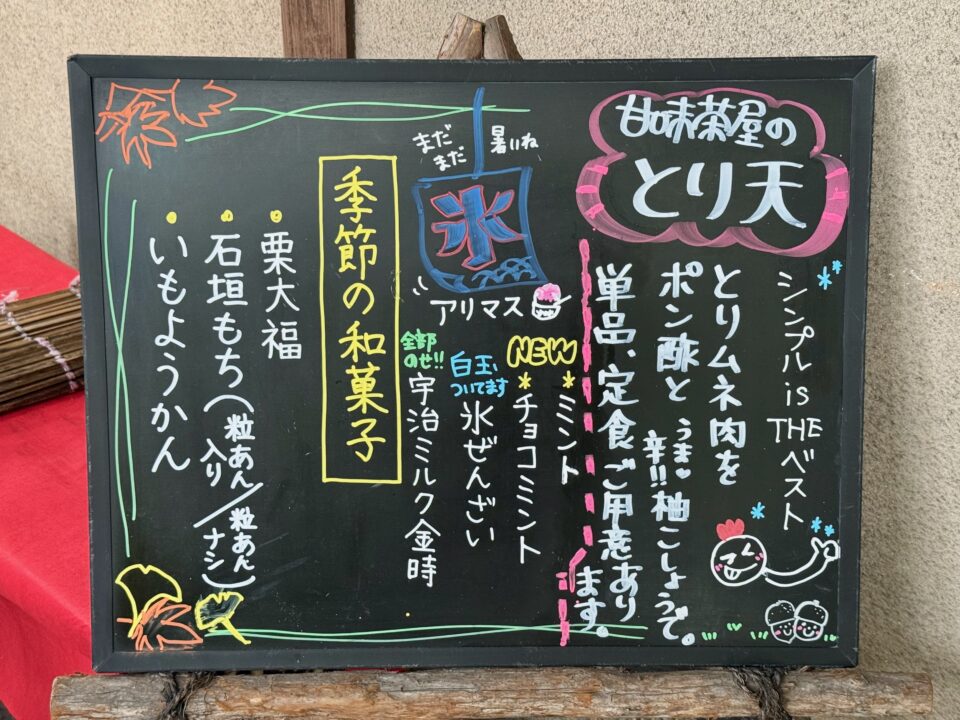 甘味茶屋の
とり天
シンプル is THE ベスト
とりムネ肉を
ポン酢と うま♥辛!! 柚こしょうで。
単品、定食ご用意あり
ます。
まだ
まだ
暑いね
氷
アリマス
NEW
*ミント
*チョコミント
白玉、
ついてます
氷ぜんざい
全部
のせ!!
宇治ミルク金時
季節の和菓子
栗大福
石垣もち(粒あん入り/粒あんナシ)
いもようかん